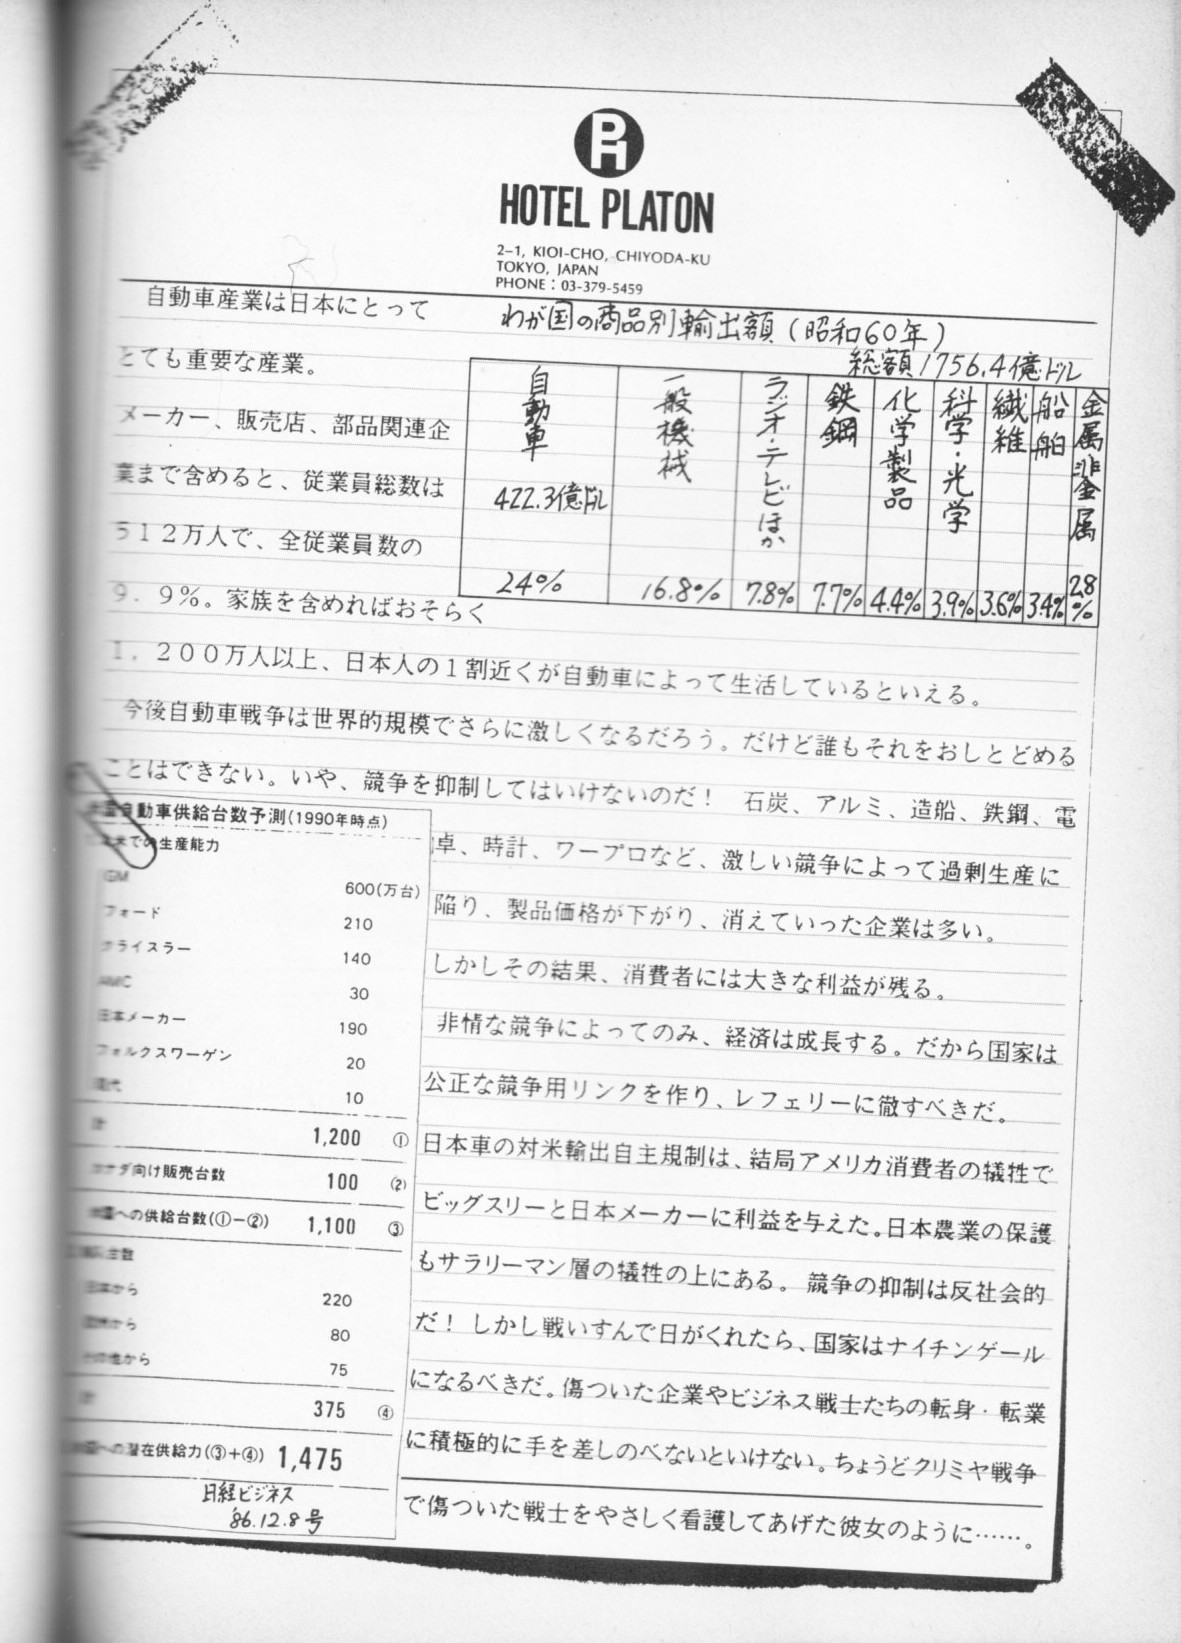 PH
HOTEL PLATON
2-1, KIOI-CHO, CHIYODA-KU
TOKYO, JAPAN
PHONE：03-379-5459
自動車産業は日本にとって
とても重要な産業。
メーカー、販売店、部品関連企
業まで含めると、従業員総数は
５１２万人で、全従業員数の
９．９％。家族を含めればおそらく
１，２００万人以上、日本人の１割近くが自動車によって生活しているといえる。
わが国の商品別輸出額（昭和60年）
総額1756.4億ドル
自動車
422.3億ドル
24%
一般機械
16.8%
ラジオ・テレビほか
7.8%
鉄鋼
7.7%
化学製品
4.4%
科学・光学
3.9%
繊維
3.6%
船舶
3.4%
金属非金属
2.8%
今後自動車戦争は世界的規模でさらに激しくなるだろう。だけど誰もそれをおしとどめる
ことはできない。いや、競争を抑制してはいけないのだ！　石炭、アルミ、造船、鉄鋼、電
卓、時計、ワープロなど、激しい競争によって過剰生産に
陥り、製品価格が下がり、消えていった企業は多い。
しかしその結果、消費者には大きな利益が残る。
非情な競争によってのみ、経済は成長する。だから国家は
公正な競争用リンクを作り、レフェリーに徹すべきだ。
日本車の対米輸出自主規制は、結局アメリカ消費者の犠牲で
ビッグスリーと日本メーカーに利益を与えた。日本農業の保護
もサラリーマン層の犠牲の上にある。競争の抑制は反社会的
だ！しかし戦いすんで日がくれたら、国家はナイチンゲール
になるべきだ。傷ついた企業やビジネス戦士たちの転身・転業
に積極的に手を差しのべないといけない。ちょうどクリミヤ戦争
で傷ついた戦士をやさしく看護してあげた彼女のように……。
自動車供給台数予測(1990年時点)
米での生産能力
GM 600(万台)
フォード 210
クライスラー 140
AMC 30
日本メーカー 190
フォルクスワーゲン 20
現代 10
計 1,200 ①
カナダ向け販売台数 100 ②
米国への供給台数(①−②) 1,100 ③
台数
日本から 220
から 80
その他から 75
計 375 ④
への潜在供給力(③+④) 1,475
日経ビジネス
'86.12.8号